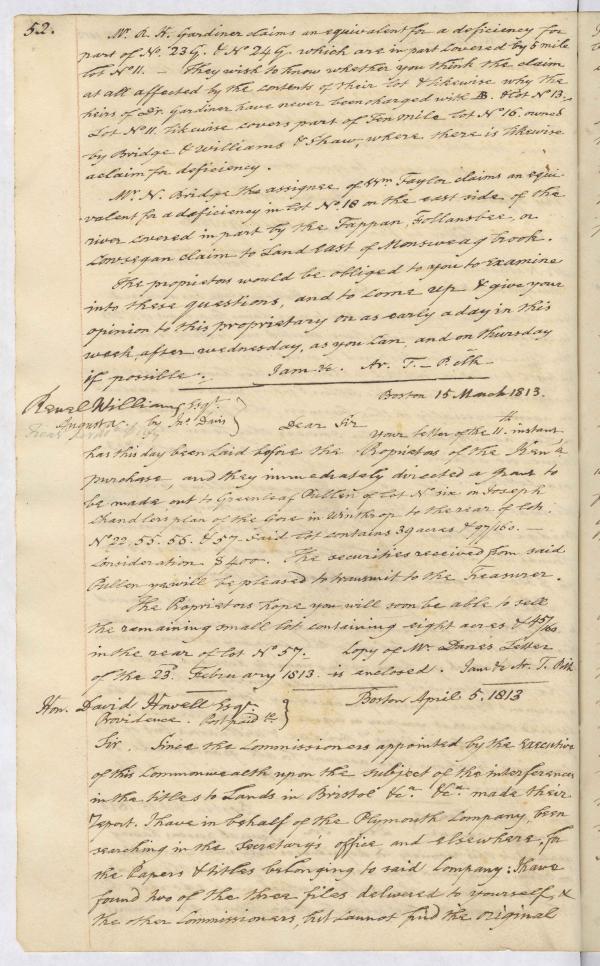 52.
Mr. R. H. Gardiner claims an equivalent for a deficiency for
part of No. 23 G. & No 24 G. which are in part covered by 5 mile
lot No 11. — They wish to know whether you think the claim
at all affected by the contents of their lot & likewise why the
heirs of Dr. Gardiner have never been charged with B. & Lot No 13.
Lot No 11. likewise covers part of Ten mile lot No 16, owned
by Bridge & Williams & Shaw, where there is likewise
a claim for deficiency.
Mr. N. Bridge the assignee of Wm. Taylor claims an equi-
valent for a deficiency in lot No 18 on the east side of the
river covered in part by the Tappan, Follansbee, or
Cowsegan claim to Land east of Monsweag brook.
The proprietors would be obliged to you to examine
into these questions, and to come up & give your
opinion to this proprietary on as early a day in this
week, after wednesday, as you can, and on thursday
if possible. I am &c. Ar. T. — P. clk
Boston 15 March 1813.
Reuel Williams Esqr.
Augusta. by Jno Davis
Dear Sir
Your letter of the 11th. instant
has this day been laid before the Proprietors of the Kenn.k
purchase, and they immediately directed a grant to
be made out to Greenleaf Pullen of lot No six on Joseph
Chandlers plan of the Gore in Winthrop to the rear of lots.
No 22. 55. 56. & 57. Said lot contains 39 acres & 97/160. —
Consideration $400. The securities received from said
Pullen you will be pleased to transmit to the Treasurer.
The Proprietors hope you will soon be able to sell
the remaining small lot containing eight acres & 45/160
in the rear of lot No 57. Copy of Mr. Danes Letter
of the 23d. February 1813. is enclosed. I am &c Ar. T. P clk
Boston April 5, 1813
Hon. David Howell Esqr.
Providence. Post paid
Sir. Since the Commissioners appointed by the Executive
of this Commonwealth upon the subject of the interferences
in the titles to Lands in Bristol &ca. &ca. made their
report. I have in behalf of the Plymouth Company, been
searching in the Secretary's office and elsewhere, for
the Papers & titles belonging to said Company; I have
found two of the three files delivered to yourself, &
the other Commissioners, but cannot find the original